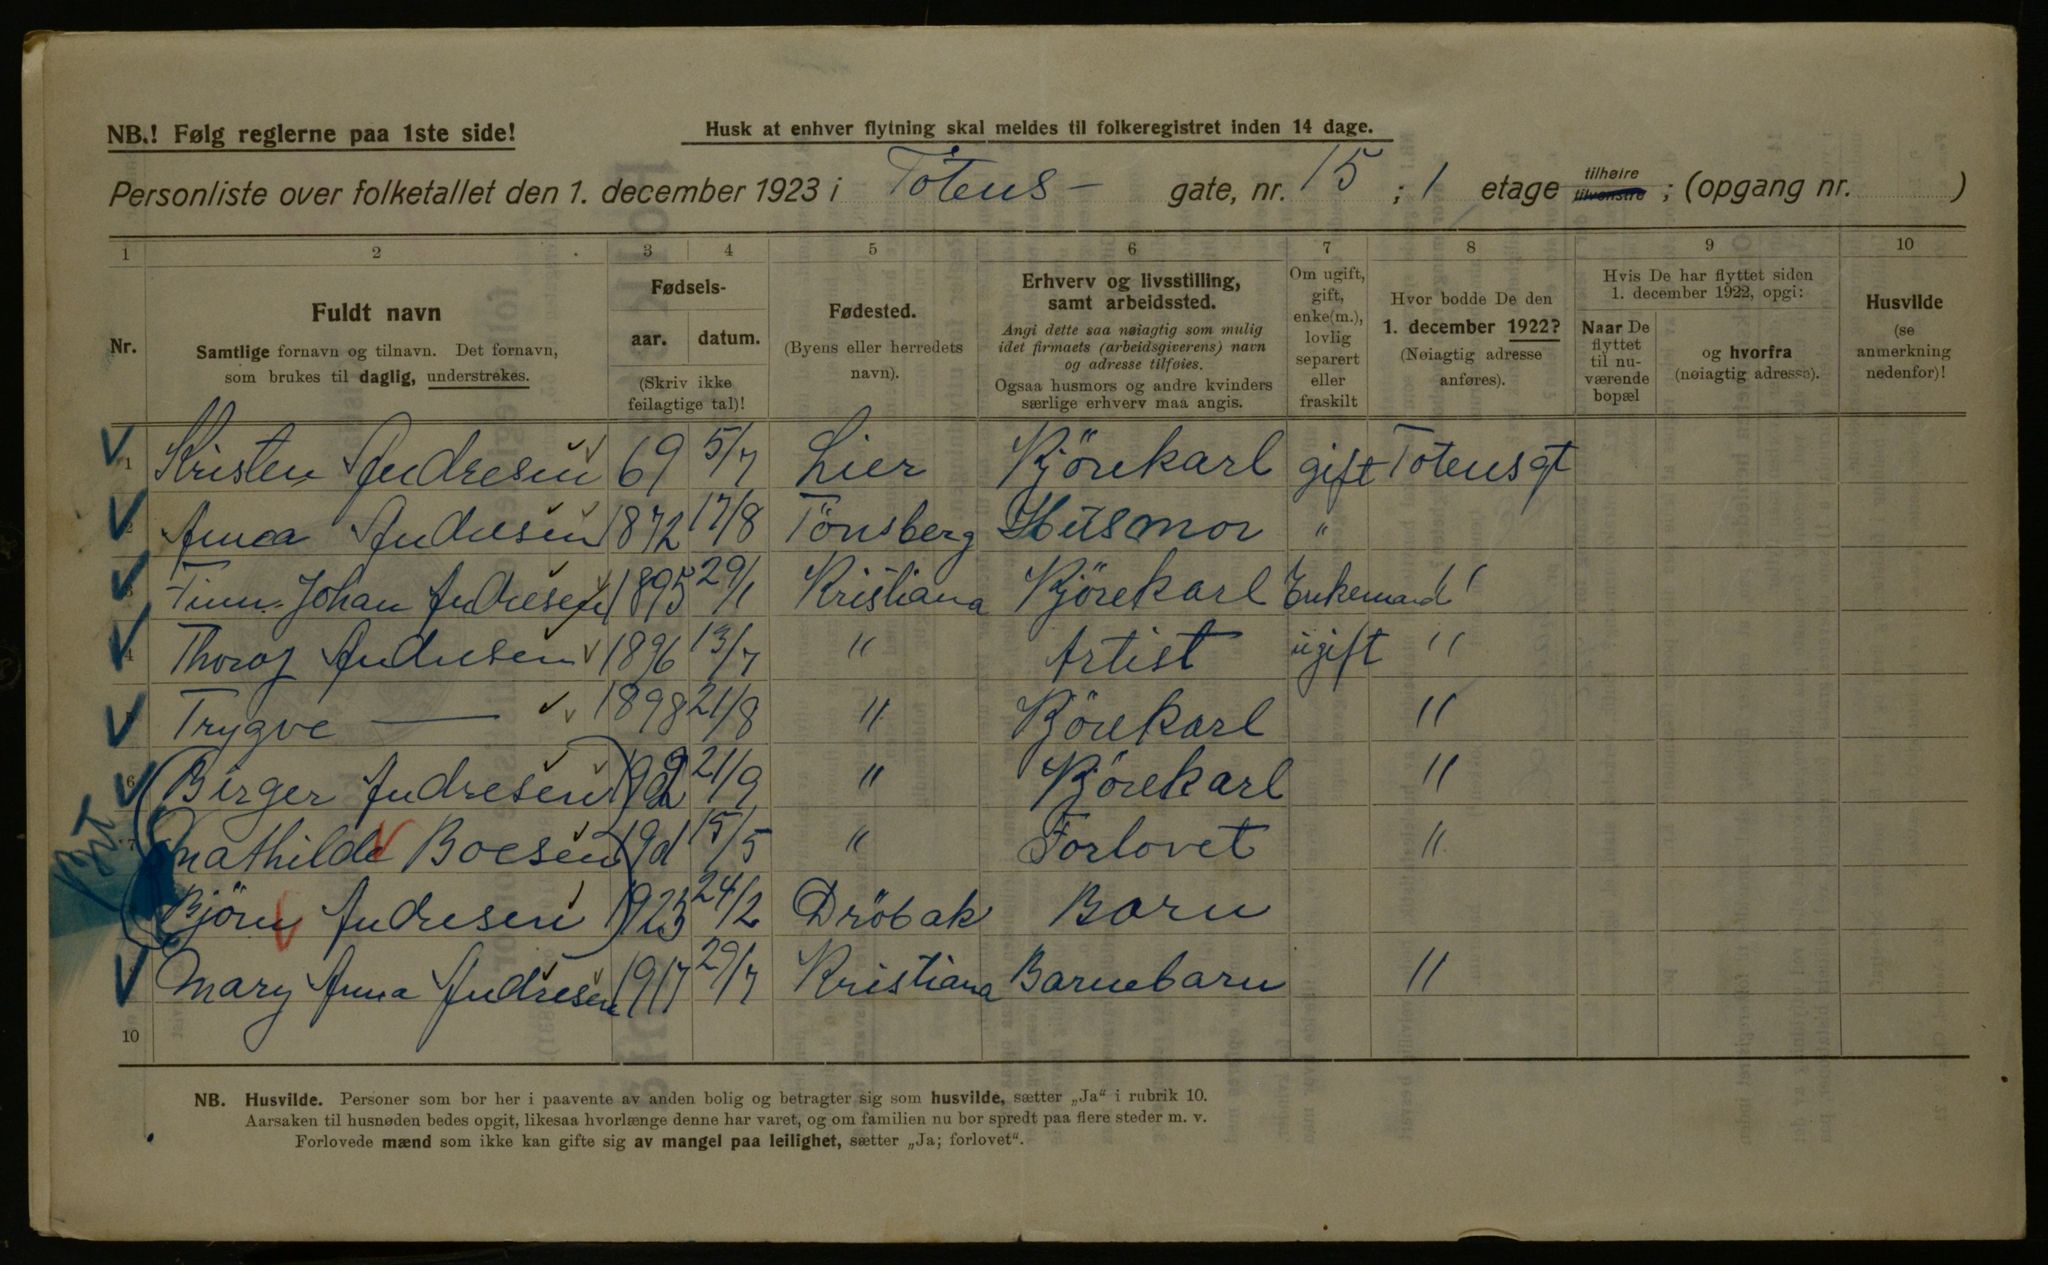 NB.! Følg reglerne paa 1ste side!
Husk at enhver flytning skal meldes til folkeregistret inden 14 dage.
Personliste over folketallet den 1. december 1923 i Totens- gate, nr. 15 ; 1 etage tilhøire tilvenstre ; (opgang nr. )
1 2 3 4 5 6 7 8 9 10
Nr.
Fuldt navn
Samtlige fornavn og tilnavn. Det fornavn,
som brukes til daglig, understrekes.
Fødsels-
aar. datum.
(Skriv ikke
feilagtige tal)!
Fødested.
(Byens eller herredets
navn).
Erhverv og livsstilling,
samt arbeidssted.
Angi dette saa nøiagtig som mulig
idet firmaets (arbeidsgiverens) navn
og adresse tilføies.
Ogsaa husmors og andre kvinders
særlige erhverv maa angis.
Om ugift,
gift,
enke(m.),
lovlig
separert
eller
fraskilt
Hvor bodde De den
1. december 1922?
(Nøiagtig adresse
anføres).
Hvis De har flyttet siden
1. december 1922, opgi:
Naar De
flyttet
til nu-
værende
bopæl
og hvorfra
(nøiagtig adresse).
Husvilde
(se
anmerkning
nedenfor)!
1 Kristen Andresen 69 5/7 Lier Kjörekarl gift Totensgt
2 Anna Andresen 1872 17/8 Tönsberg Husmor "
3 Finn Johan Andresen 1895 29/1 Kristiana Kjörekarl Enkemand "
4 Andresen 1896 13/7 " Artist ugift "
5 Trygve — 1898 21/8 " Kjörekarl "
6 Birger Andresen 21/9 " Kjörekarl "
7 Mathilde Boesen 15/5 " Forlovet "
Björn Andresen 1923 24/2 Dröbak Barn
Mary Anna Andresen 1917 29/7 Kristiana Barnebarn "
10
NB. Husvilde. Personer som bor her i paavente av anden bolig og betragter sig som husvilde, sætter „Ja“ i rubrik 10.
Aarsaken til husnøden bedes opgit, likesaa hvorlænge denne har varet, og om familien nu bor spredt paa flere steder m. v.
Forlovede mænd som ikke kan gifte sig av mangel paa leilighet, sætter „Ja; forlovet“.